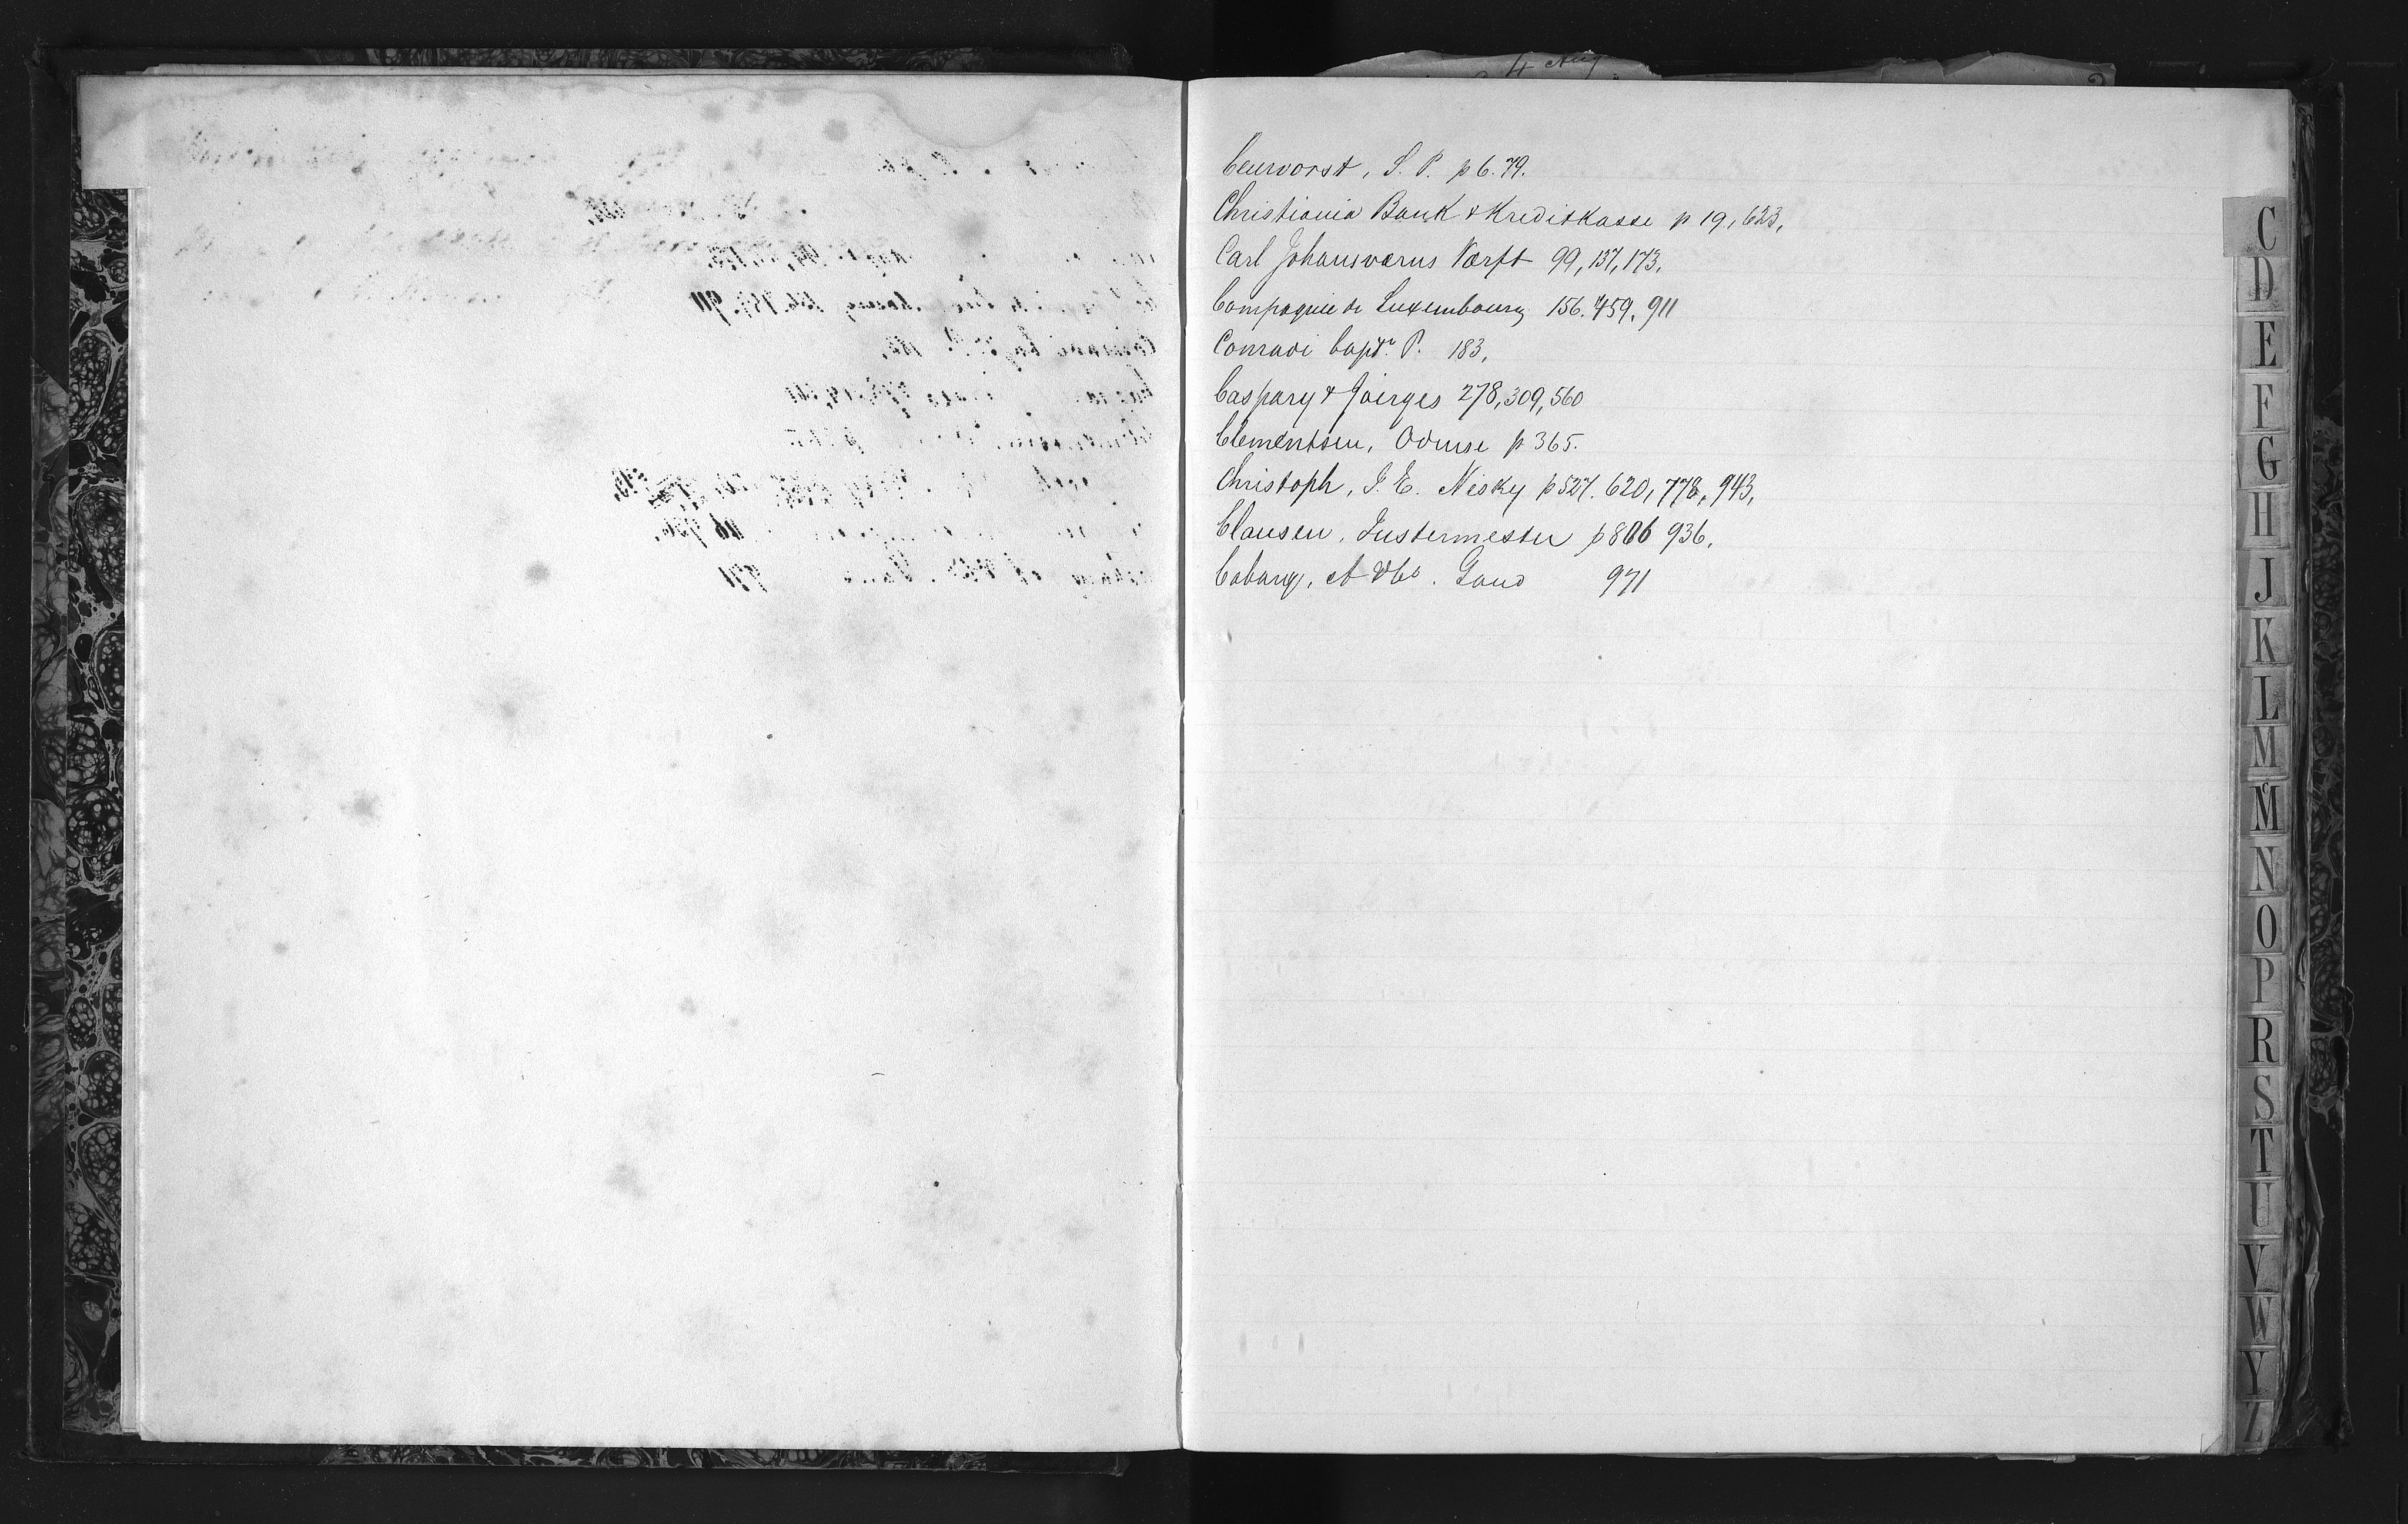 4 Aug
Ceurvorst, S. P. p 6. 79.
Christiania Bank & Kreditkasse p 19, 623,
Carl Johansværns Værft 99, 137, 173.
Compagnie de Luxembourg 156. 459, 911
Conradi Captn. P. 183,
Caspary & Joerges 278, 309, 560
Clementsen, Odense p 365.
Christoph, I. E. Nisky p 527. 620, 778, 943,
Clausen, Justermester p 806 936.
Coburg, A & Co. Gand 971
C
D
E
F
G
H
J
K
L
M
Mc
N
O
P
R
S
T
U
V
W
Y
Z